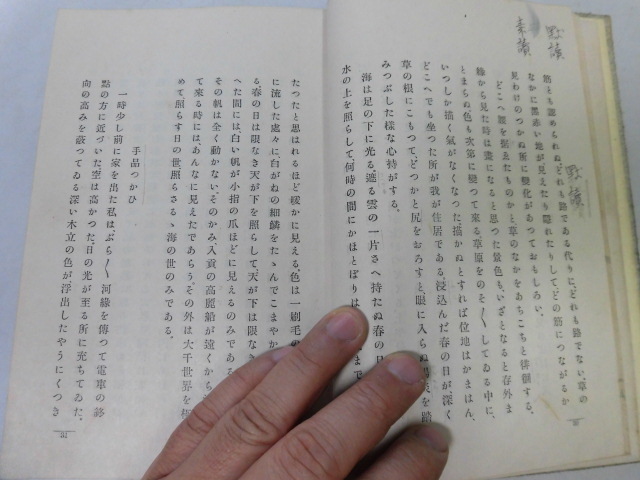 默讀
素讀
默讀
筋とも認められぬ、どれも路である代りに、どれも路でない。草の
なかに黒赤い地が見えたり隱れたりして、どの筋につながるか
見わけのつかぬ所に變化があつておもしろい。
どこへ腰を据ゑたものかと草のなかをあちこちと徘徊する。
緣から見た時は畫になると思つた景色も、いざとなると存外ま
とまらぬ。色も次第に變つて來る。草原をのそ〱してゐる中に、
いつしか描く氣がなくなつた。描かぬとすれば位地はかまはん、
どこへでも坐つた所が我が住居である。浸込んだ春の日が深く
草の根にこもつて、どつかと尻をおろすと、眼に入らぬ陽炎を踏
みつぶした樣な心持がする。
海は足の下に光る。遮る雲の一片さへ持たぬ春の日
水の上を照らして、何時の間にかほとぼりは まで
たつたと思はれるほど暖かに見える。色は一刷毛の
に流した處々に白がねの細鱗をたゝんでこまやか
る。春の日は限なき天が下を照らして、天が下は限なき
へた間には、白い帆が小指の爪ほどに見えるのみである
その帆は全く動かない。そのかみ入貢の高麗船が遠くから
て來る時には、あんなに見えたであらう。その外は大千世界を極
めて、照らす日の世、照らさるゝ海の世のみである。
手品つかひ
一時少し前に家を出た私は、ぶら〱河緣を傳つて電車の終
點の方に近づいた。空は高かつた。日の光が至る所に充ちてゐた。
向の高みを蔽つてゐる深い木立の色が浮出したやうにくつき